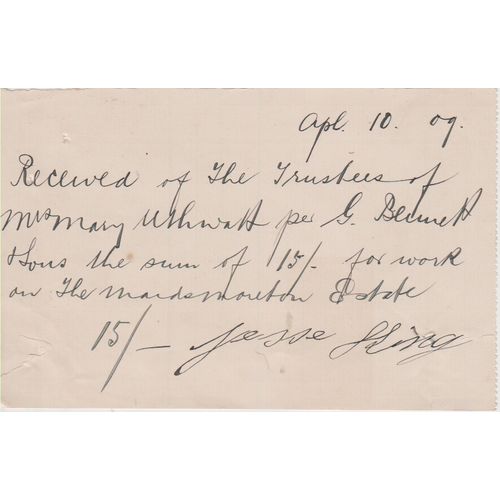 Apl. 10. 09.
Received of The Trustees of
Mrs Mary Uthwatt per G. Bennett
& Sons the sum of 15/- for work
on The Maidsmoreton Estate
15/- Jesse King